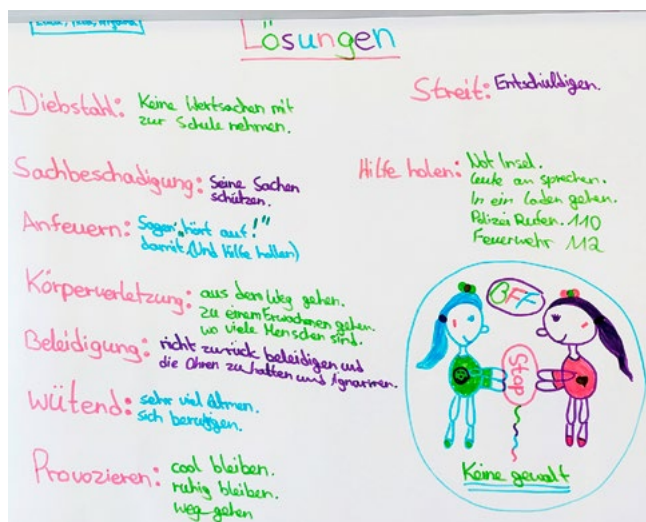 Lösungen
Diebstahl: Keine Wertsachen mit
zur Schule nehmen.
Sachbeschädigung: Seine Sachen
schützen.
Anfeuern: Sagen „hört auf!"
damit. (Und Hilfe hollen)
Körperverletzung: aus dem Weg gehen.
zu einem Erwachsenen gehen.
wo viele Menschen sind.
Beleidigung: nicht zurück beleidigen und
die Ohren zu halten und ignoriren.
Wütend: sehr viel Atmen.
sich beruhigen.
Provozieren: cool bleiben.
ruhig bleiben.
weg gehen
Streit: Entschuldigen.
Hilfe holen: Not Insel.
Leute an sprechen.
In ein Laden gehen.
Polizei Rufen. 110
Feuerwehr 112
BFF
Stop
Keine gewalt